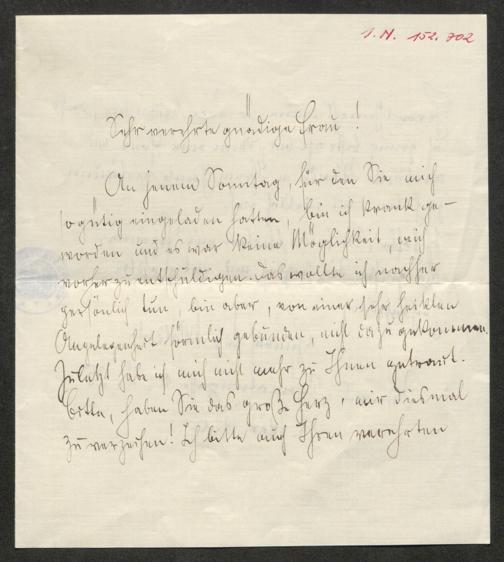 I. N. 152.702
Sehr verehrte gnädige Frau!
An jenem Sonntag, für den Sie mich
so gütig eingeladen hatten, bin ich krank ge-
worden und es war keine Möglichkeit, mich
vorher zu entschuldigen. Das wollte ich nachher
persönlich tun, bin aber, von einer sehr heiklen
Angelegenheit förmlich gebunden, nicht dazu gekommen.
Zuletzt habe ich mich nicht mehr zu Ihnen getraut.
Bitte, haben Sie das große Herz, mir diesmal
zu verzeihen! Ich bitte auch Ihren verehrten